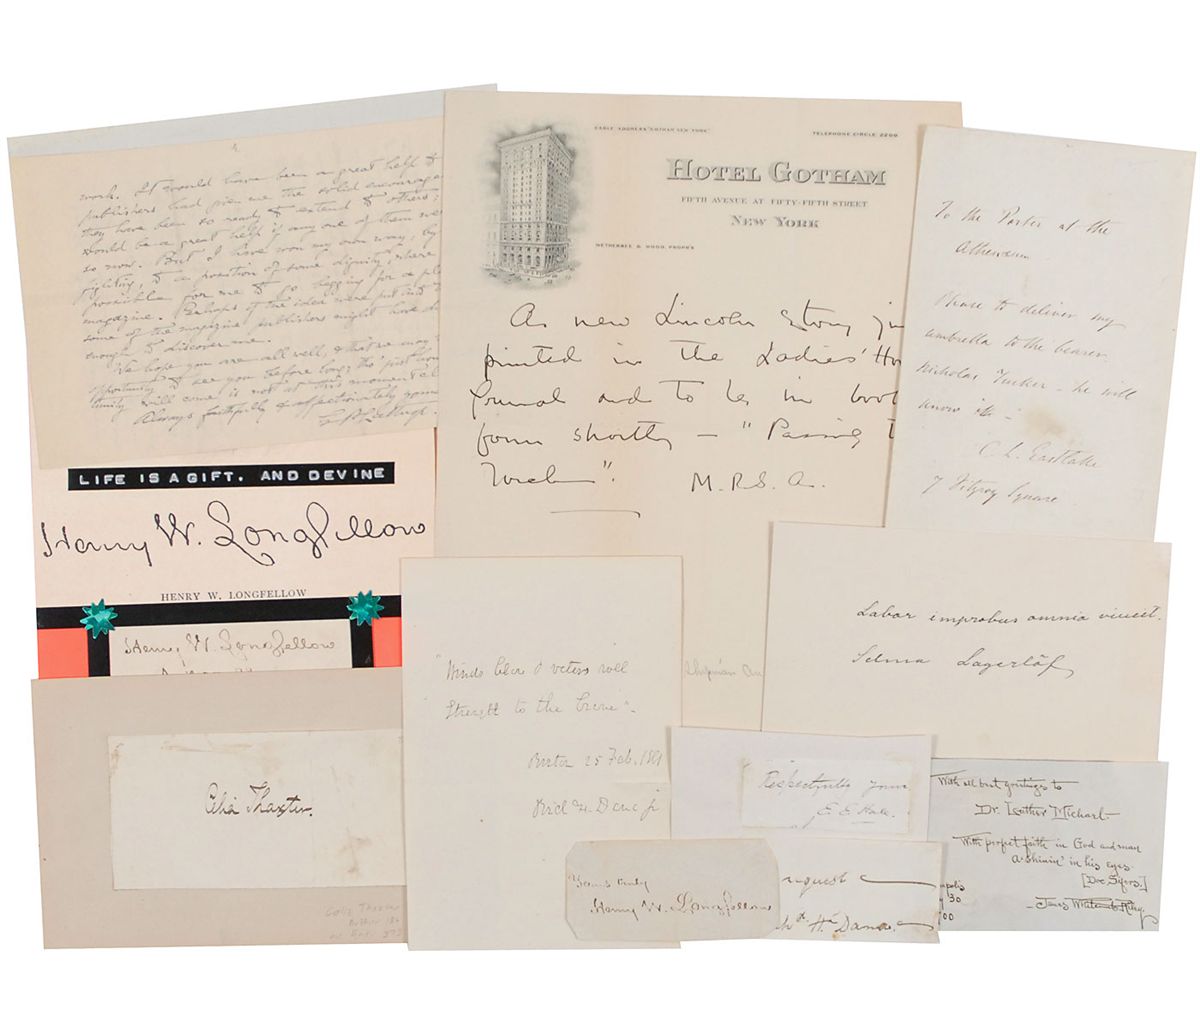 work. It would have been a great help if
publishers had given me the solid encourage
they have been so ready to extend to others;
would be a great help if any one of them were
so now. But I have won my own way, by
fighting, to a position of some dignity, where
possible for me to go begging for a pl
magazine. Perhaps if the idea were put into
some of the magazine publishers might
enough to discover me.
We hope you are all well, & that we may
opportunity to see you before long; tho' just how
tunity will come is not at this moment
Always faithfully & affectionately yours
CABLE ADDRESS "GOTHAM NEW YORK"
TELEPHONE CIRCLE 2200
HOTEL GOTHAM
FIFTH AVENUE AT FIFTY-FIFTH STREET
NEW YORK
WETHERBEE & WOOD, PROP'RS
A new Lincoln story ju
printed in the Ladies' Ho
Journal and to be in boo
form shortly — "Passing
M. R. S. A.
To the Porter at the
Athenæum
Please to deliver my
umbrella to the bearer
Nicholas Tucker – he will
know it –
C. L. Eastlake
7 Fitzroy Square
LIFE IS A GIFT, AND DEVINE
Henry W. Longfellow
HENRY W. LONGFELLOW
Henry W. Longfellow
Labor improbus omnia vincit.
Selma Lagerlöf
"Winds blow & waters roll
Strength to the brave".
Boston 25 Feb. 18
Rich H. Dana jr
Chapman
Celia Thaxter.
Celia Thaxter
Respectfully yours
E. E. Hale.
Yours truly
Henry W. Longfellow
nquest
H. Dana.
With all best greetings to
Dr. Luther Michael
With perfect faith in God and man
A-shinin' in his eyes.
[Doc Sifers.]
polis
30
00
James Whitcomb Riley.